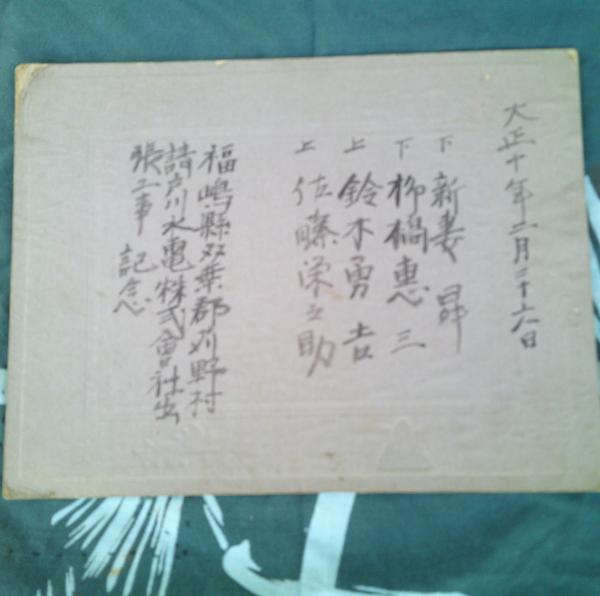 大正十年二月二十六日
下 新妻 昇
下 柳橋惠三
上 鈴木勇吉
上 佐藤栄之助
福嶋縣双葉郡苅野村
請戸川水電株式會社出
張工事 記念